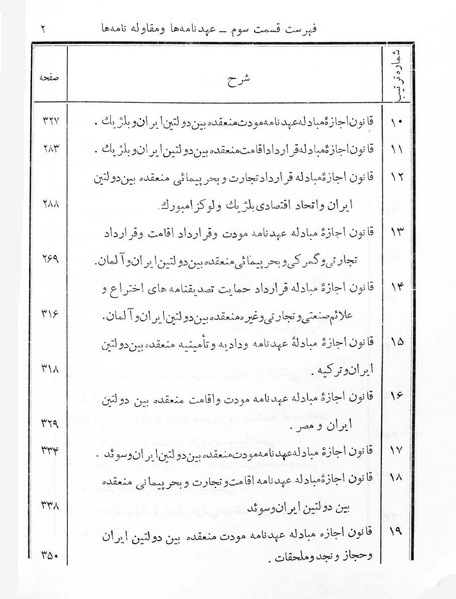 فهرست قسمت سوم ـ عهدنامه‌ها ومقاوله نامه‌ها ۲
شماره ترتیب شرح صفحه
۱۰ قانون اجازهٔ مبادله عهدنامه مودت منعقده بین دولتین ایران و بلژیك . ۳۲۷
۱۱ قانون اجازهٔ مبادله قرارداد اقامت منعقده بین دولتین ایران و بلژیك . ۲۸۳
۱۲ قانون اجازهٔ مبادله قرارداد تجارت و بحر پیمائی منعقده بین دولتین
ایران و اتحاد اقتصادی بلژیك و لوکزامبورك. ۲۸۸
۱۳ قانون اجازهٔ مبادله عهدنامه مودت وقرارداد اقامت وقرارداد
تجارتی و گمرکی و بحر پیمائی منعقده بین دولتین ایران و آلمان. ۲۶۹
۱۴ قانون اجازهٔ مبادله قرارداد حمایت تصدیقنامه های اختراع و
علائم صنعتی و تجارتی وغیره منعقده بین دولتین ایران و آلمان. ۳۱۶
۱۵ قانون اجازهٔ مبادلهٔ عهدنامه ودادیه و تأمینیه منعقده بین دولتین
ایران و ترکیه . ۳۱۸
۱۶ قانون اجازهٔ مبادله عهدنامه مودت واقامت منعقده بین دولتین
ایران و مصر . ۳۲۹
۱۷ قانون اجازهٔ مبادله عهدنامه مودت منعقده بین دولتین ایران وسوئد . ۳۳۴
۱۸ قانون اجازهٔ مبادله عهدنامه اقامت و تجارت و بحر پیمائی منعقده
بین دولتین ایران و سوئد ۳۳۸
۱۹ قانون اجازه مبادله عهدنامه مودت منعقده بین دولتین ایران
و حجاز و نجد و ملحقات . ۳۵۰